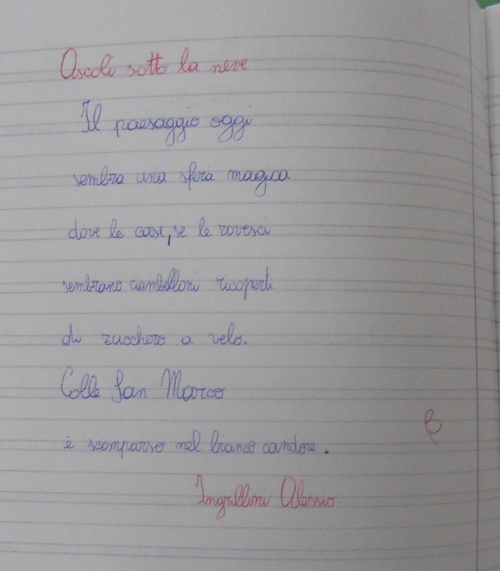 Ascoli sotto la neve
Il paesaggio oggi
sembra una sfera magica
dove le case, se le rovesci
sembrano ciambelloni ricoperti
di zucchero a velo.
Colle San Marco
è scomparso nel bianco candore.
B
Ingrillini Alessio